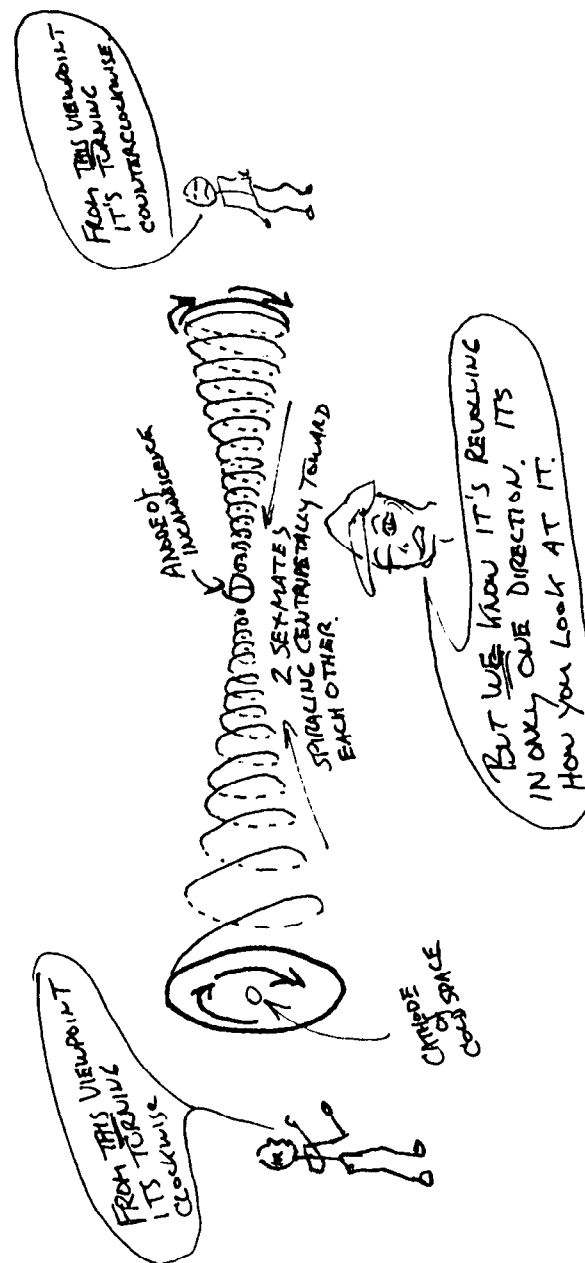 FROM THIS VIEWPOINT
ITS TURNING
CLOCKWISE
CATHODE
OF
COLD SPACE
ANODE OF
INCANDESCENCE
2 SEX-MATES
SPIRALING CENTRIPETALLY TOWARD
EACH OTHER.
FROM THIS VIEWPOINT
IT'S TURNING
COUNTERCLOCKWISE.
BUT WE KNOW IT'S REVOLVING
IN ONLY ONE DIRECTION. ITS
HOW YOU LOOK AT IT.